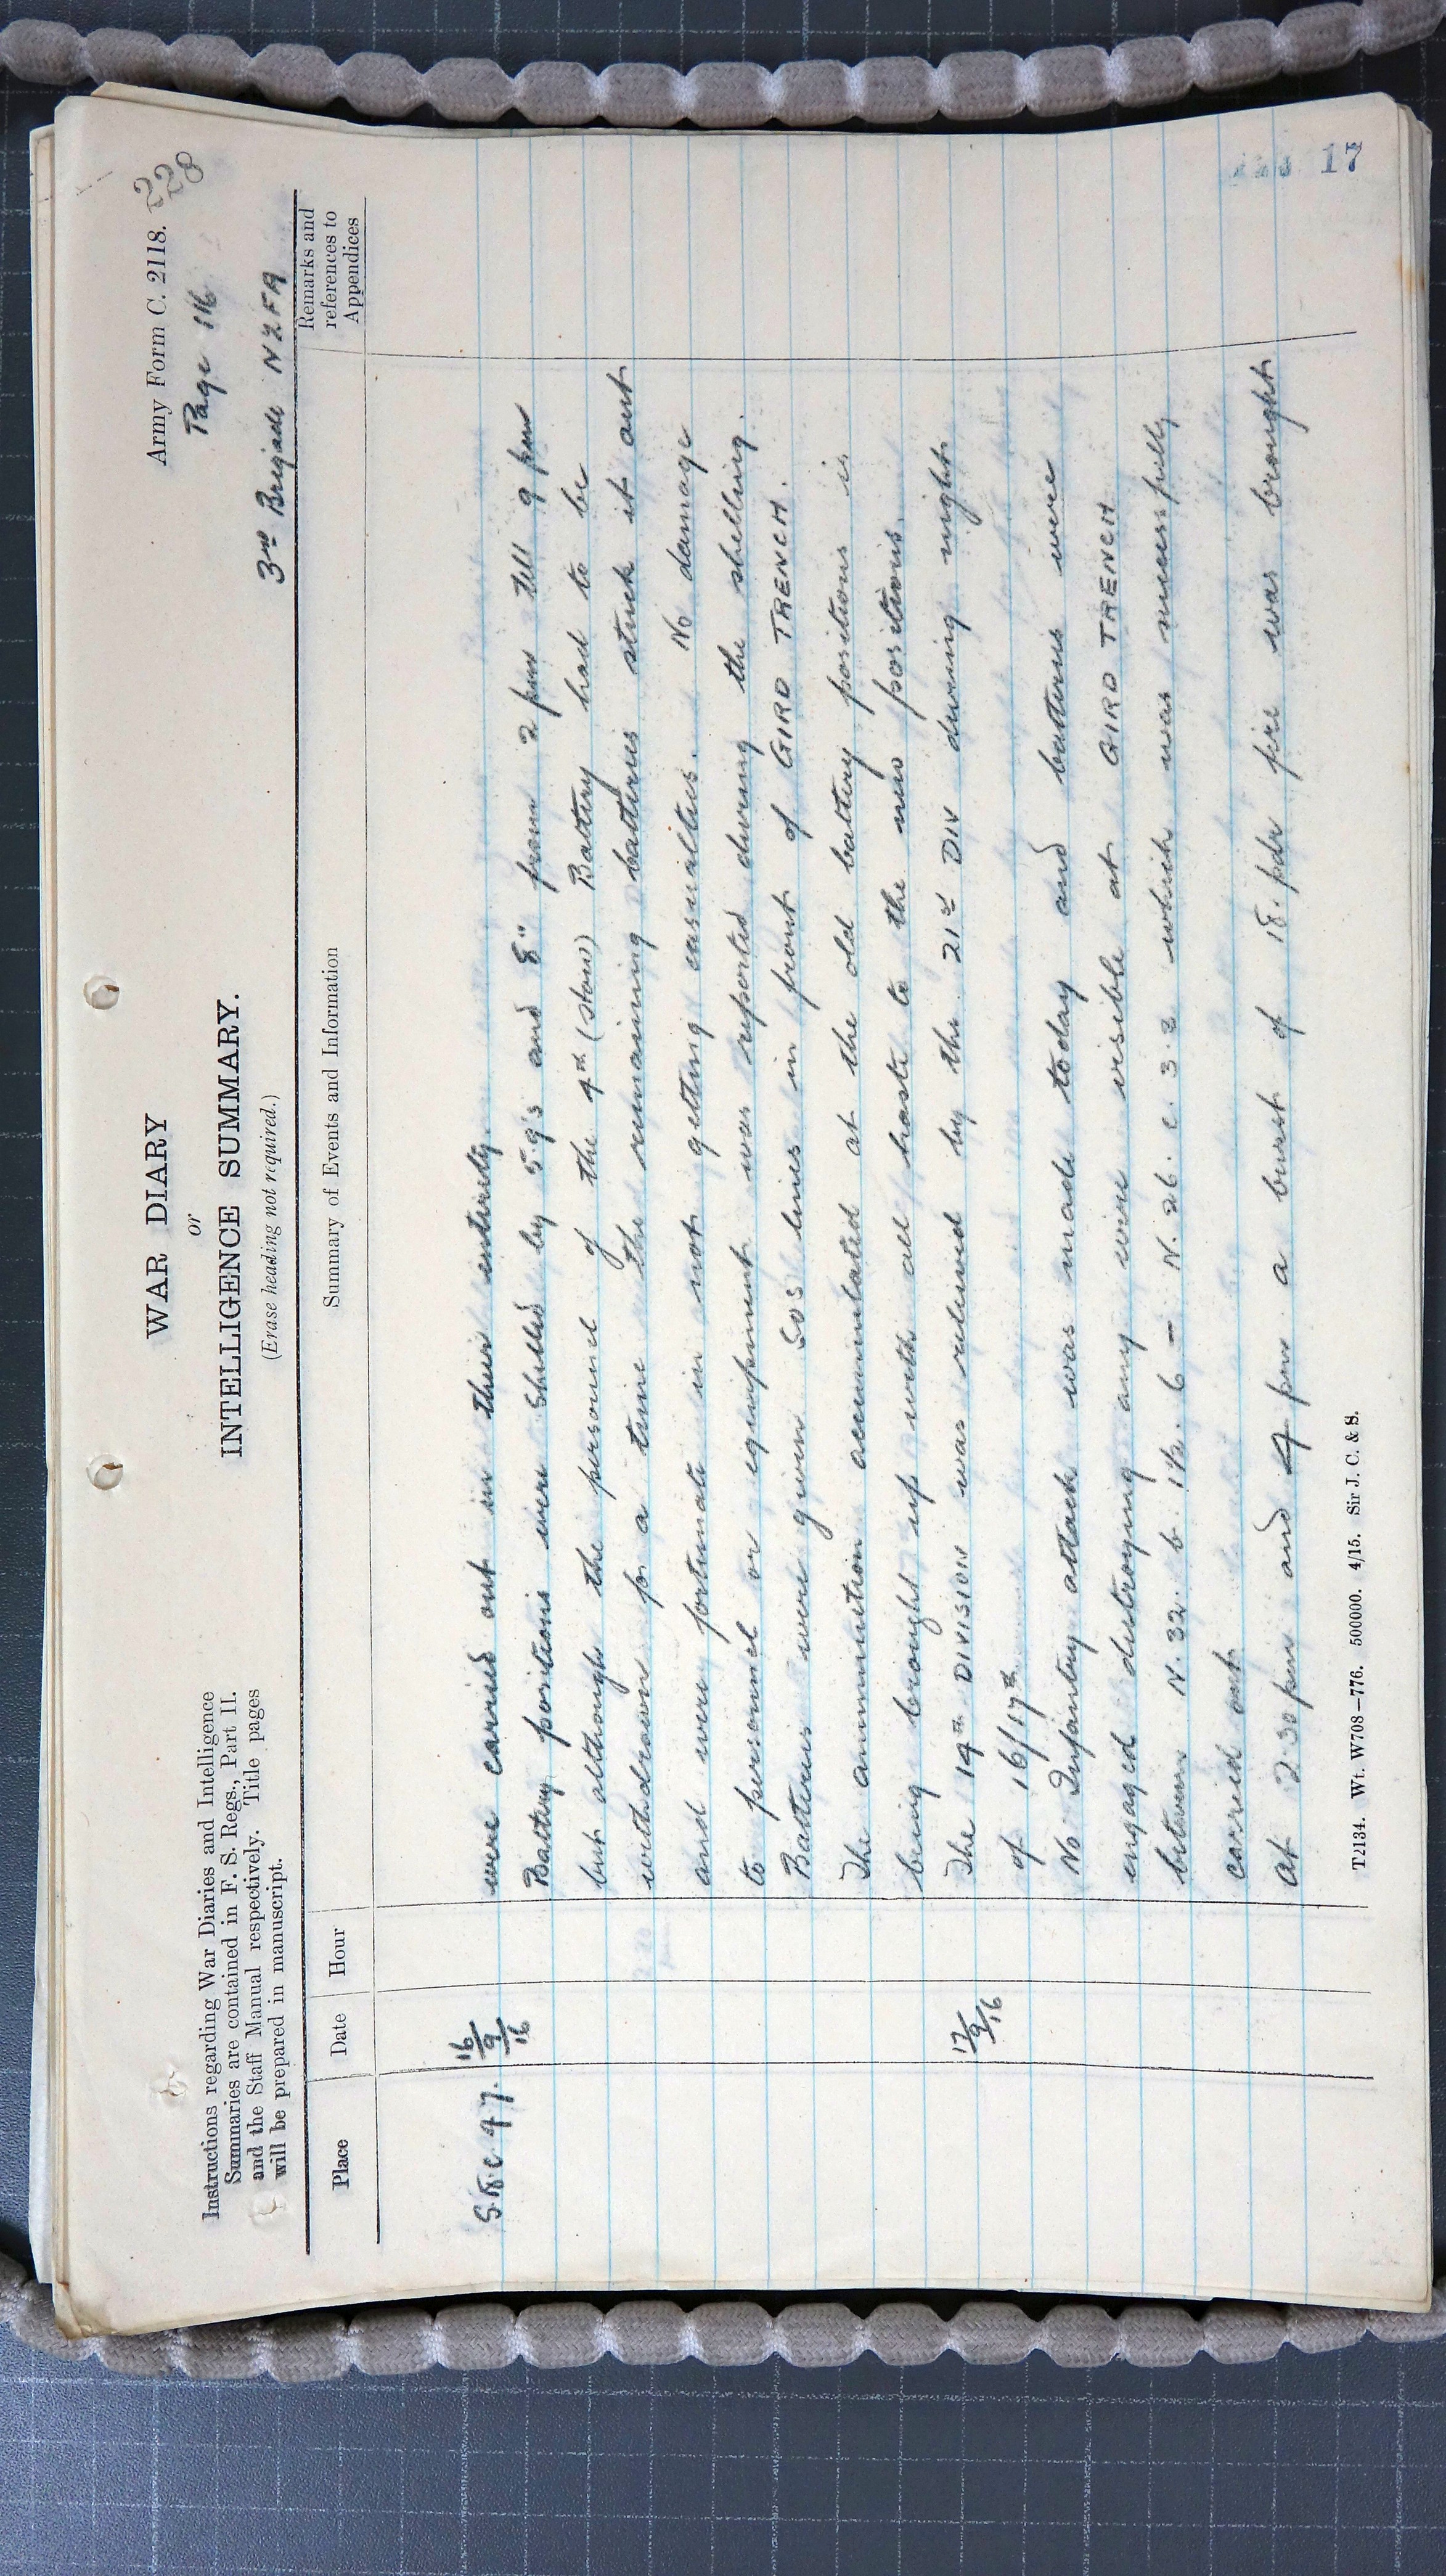 Army Form C. 2118.
228
Page 116
3rd Brigade NZFA
WAR DIARY
or
INTELLIGENCE SUMMARY.
(Erase heading not required.)
Instructions regarding War Diaries and Intelligence
Summaries are contained in F. S. Regs., Part II.
and the Staff Manual respectively. Title pages
will be prepared in manuscript.
Place
Date
Hour
Summary of Events and Information
Remarks and
references to
Appendices
16/9/16
were carried out in their entirety.
Battery positions were shelled by 5.9's and 8" from 2 pm till 9 pm
but although the personel of the 4th (How) Battery had to be
withdrawn for a time the remaining batteries stuck it out
and were fortunate in not getting casualties. No damage
to personnel or equipment was reported during the shelling.
Batteries were given SOS lines in front of GIRD TRENCH.
The ammunition accumulated at the old battery positions is
being brought up with all haste to the new positions.
17/9/16
The 14th DIVISION was relieved by the 21st DIV during night
of 16/17th
No Infantry attack was made today and batteries were
engaged destroying any wire visible at GIRD TRENCH
between N.32.b. 1½.6 – N.26.c.3.2 which was successfully
carried out
At 2.30 pm and 4 pm a burst of 18.pdr fire was brought
T2134. Wt. W708—776. 500000. 4/15. Sir J. C. & S.
17